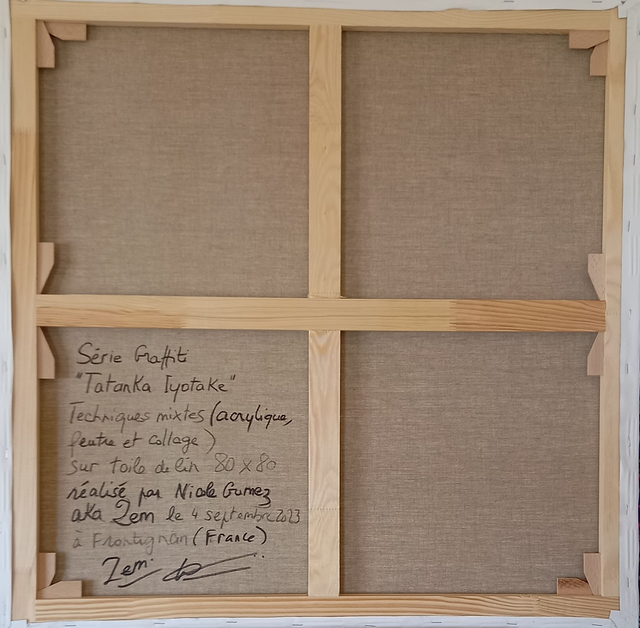 Série Graffiti
"Tatanka Iyotake"
Techniques mixtes (acrylique,
feutre et collage)
sur toile de lin 80 x 80
réalisé par Nicole Gomez
aka Zem le 4 septembre 2023
à Frontignan (France)
Zem